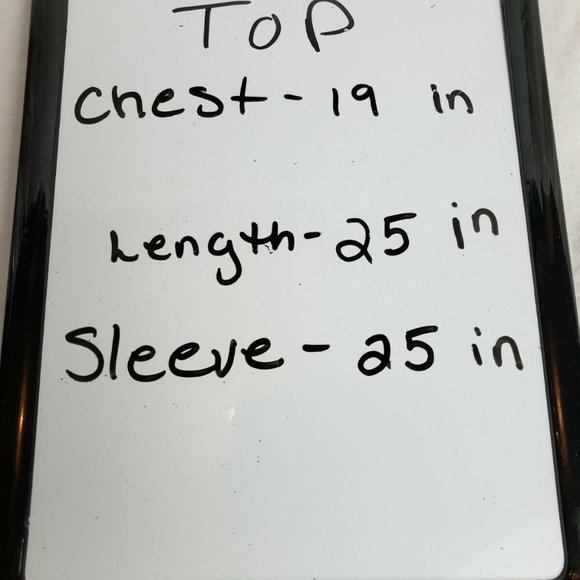 TOP
Chest - 19 in
Length - 25 in
Sleeve - 25 in